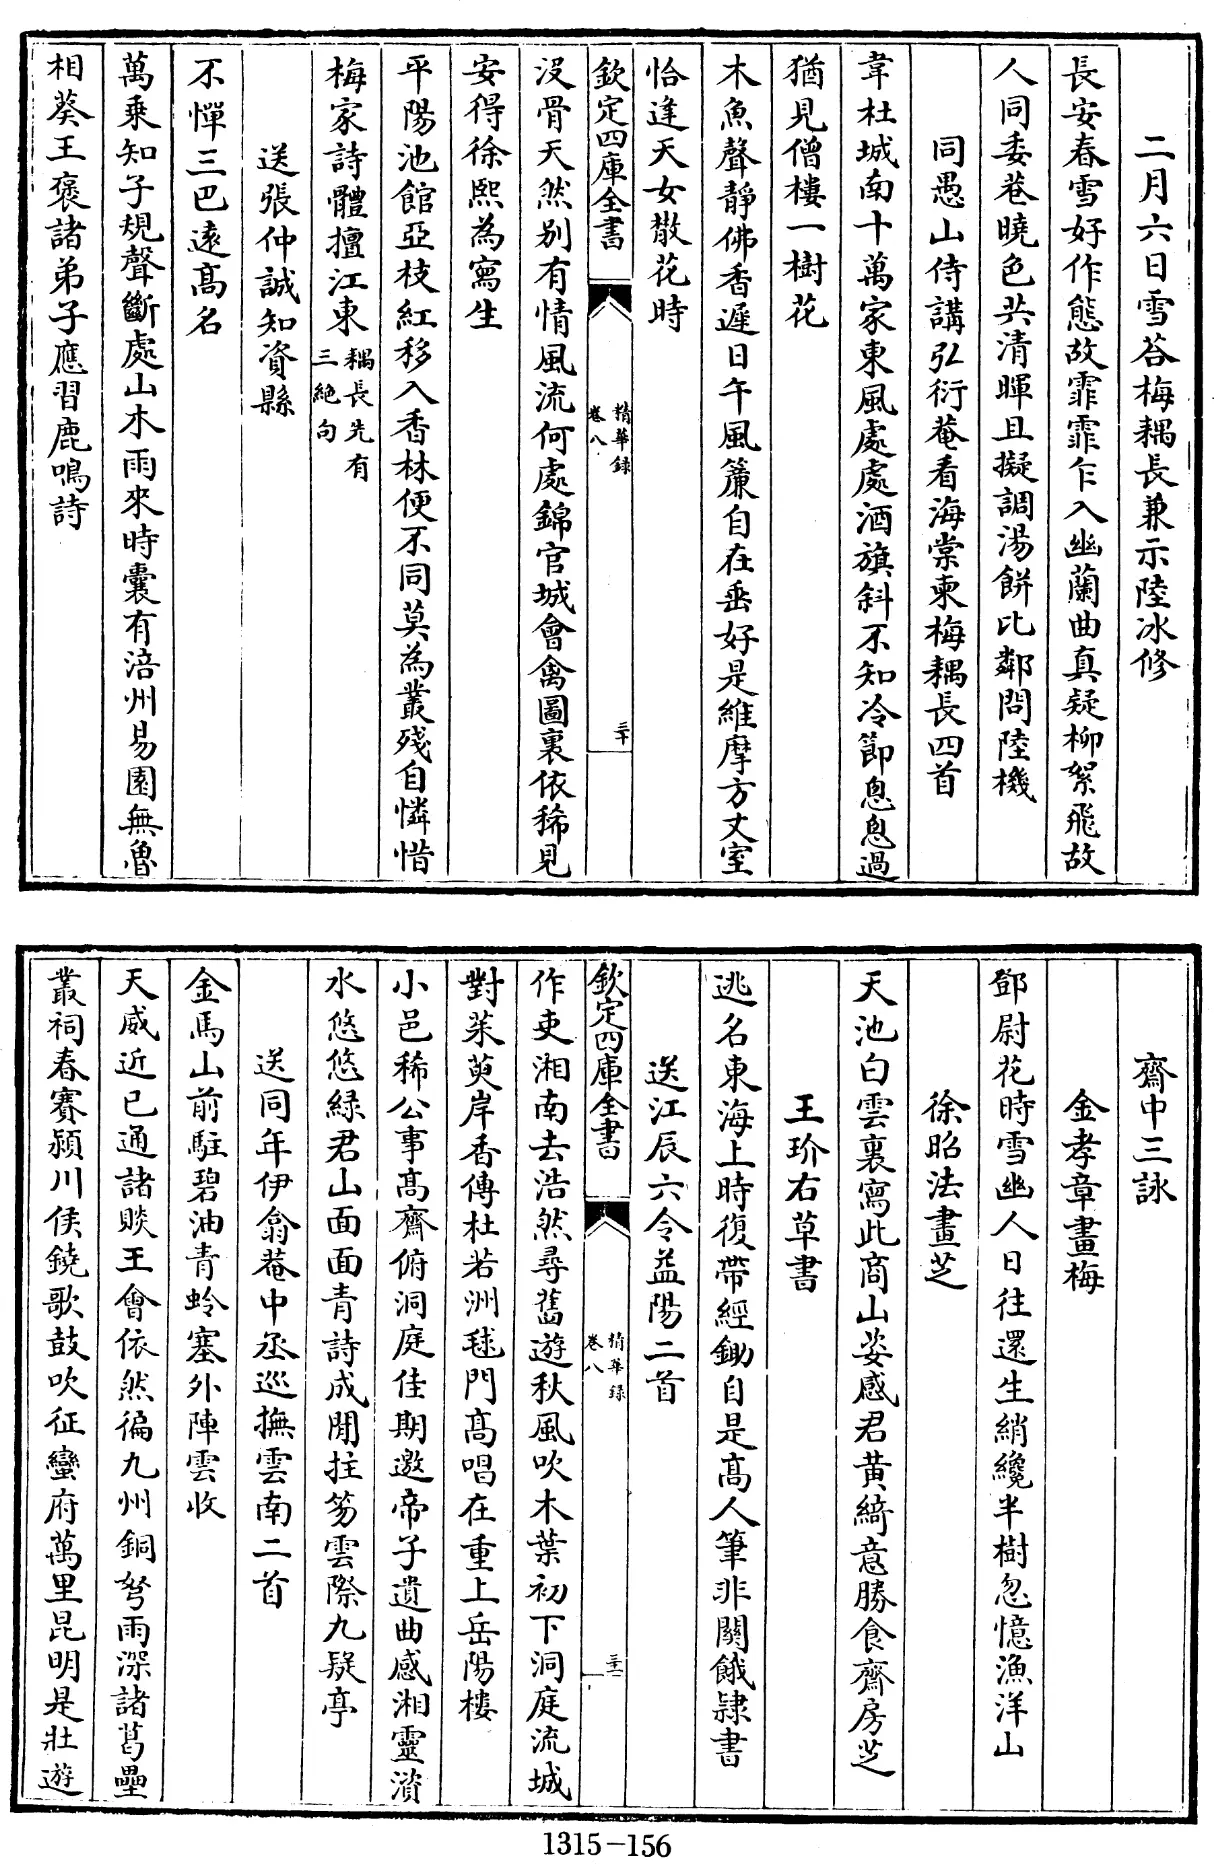 二月六日雪荅梅耦長兼示陸冰修
長安春雪好作態故霏霏乍入幽蘭曲真疑柳絮飛故
人同委巷曉色共清暉且擬調湯餅比鄰問陸機
同愚山侍講弘衍菴看海棠柬梅耦長四首
韋杜城南十萬家東風處處酒旗斜不知冷節怱怱過
猶見僧樓一樹花
木魚聲靜佛香遲日午風簾自在垂好是維摩方丈室
恰逢天女散花時
欽定四庫全書
精華録
卷八
三十
沒骨天然別有情風流何處錦官城會禽圖裏依稀見
安得徐熙為寫生
平陽池館亞枝紅移入香林便不同莫為叢殘自憐惜
梅家詩體擅江東耦長先有三絶句
送張仲誠知資縣
不憚三巴遠髙名
萬乗知子規聲斷處山木雨來時囊有涪州易園無魯
相葵王襃諸弟子應習鹿鳴詩
齋中三詠
金孝章畫梅
鄧尉花時雪幽人日往還生綃纔半樹忽憶漁洋山
徐昭法畫芝
天池白雲裏寫此商山姿感君黄綺意勝食齋房芝
王玠右草書
逃名東海上時復帶經鋤自是髙人筆非關餓隸書
送江辰六令益陽二首
欽定四庫全書
精華録
卷八
三十一
作吏湘南去浩然尋舊遊秋風吹木葉初下洞庭流城
對茱萸岸香傳杜若洲毬門髙唱在重上岳陽樓
小邑稀公事髙齋俯洞庭佳期邀帝子遺曲感湘靈濱
水悠悠緑君山面面青詩成閒拄笏雲際九疑亭
送同年伊翕菴中丞巡撫雲南二首
金馬山前駐碧油青蛉塞外陣雲收
天威近已通諸賧王會依然徧九州銅弩雨深諸葛壘
叢祠春賽潁川侯鐃歌鼓吹征蠻府萬里昆明是壯遊
1315-156